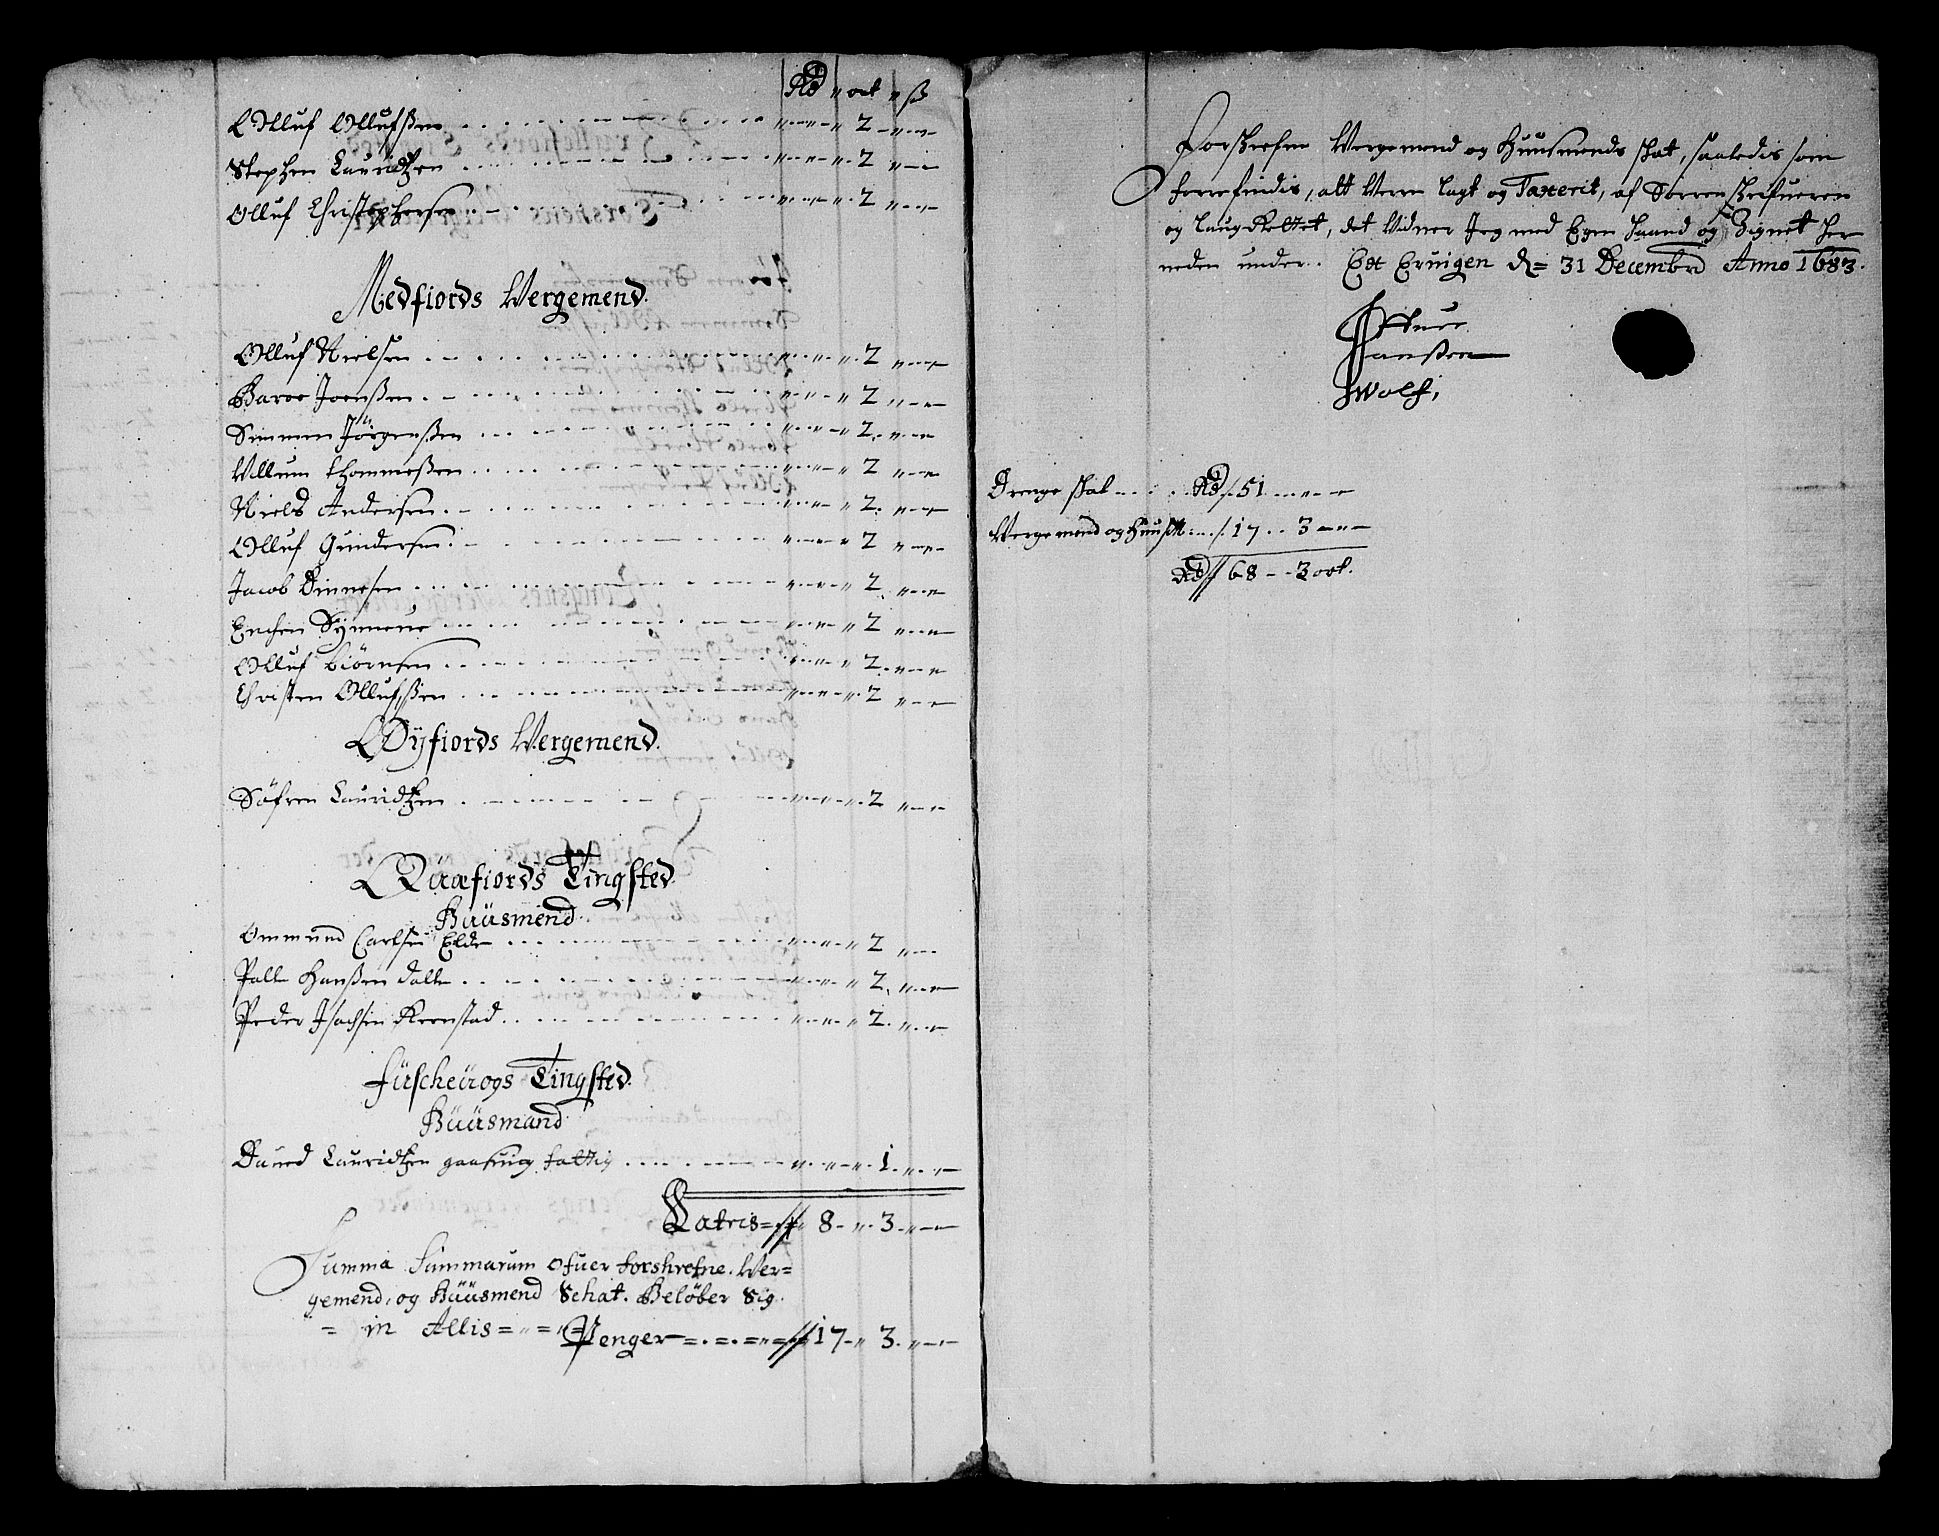 Rd " ort " ß
Olluf Ollufßen . . . . " 2 "
Stephen Lauridtzen . . . . " 2 "
Olluf Christophersen . . . . " 2 "
Medfiords Vergemend.
Olluf Nielsen . . . . " 2 "
Baroe Joenßen . . . . " 2 "
Simmen Jörgenßen . . . . " 2 "
Villum Thommeßen . . . . " 2 "
Niels Andersen . . . . " 2 "
Olluf Gundersen . . . . " 2 "
Jacob Dinnesen . . . . " 2 "
Enchen Synneue . . . . " 2 "
Olluf biörnsen . . . . " 2 "
Christen Ollufßen . . . . " 2 "
Öyfiords Vergemend.
Söfren Lauridtzen . . . . " 2 "
Quæfiords Tingsted.
Huusmend.
Ommund Carlsen Elde . . . . " 2 "
Palle Hanßen dalle . . . . " 2 "
Peder Isachsen Reenstad . . . . " 2 "
fürscheüogs Tingsted.
Huusmand
Dauid Lauridtzen gaasuig fattig . . . . " 1 "
Lateris = // 8 - " 3 "
Summa Summarum ofuer forshrefne. Ver=
gemend, og Huusmend Schat. Beløber Sig.
= in Allis = " = " = Penger = // 17 - " 3 "
Forskrefne Vergemend og Huusmends skat, saaledis som
forrefindis, att Være lagt og Taxerit, af Sorrenskrifueren
og laug Rettet, det Vidner Jeg med Egen haand og Signet her
neden under. Ex Eruigen d= 31 Decembr Anno 1683.
Hanßen
Wolf,
Drenge skat . . . . Rd / 51 " - " -
Vergemend og Huusk: . . / 17 . . 3 - " -
Rd // 68 - - 3 ort.